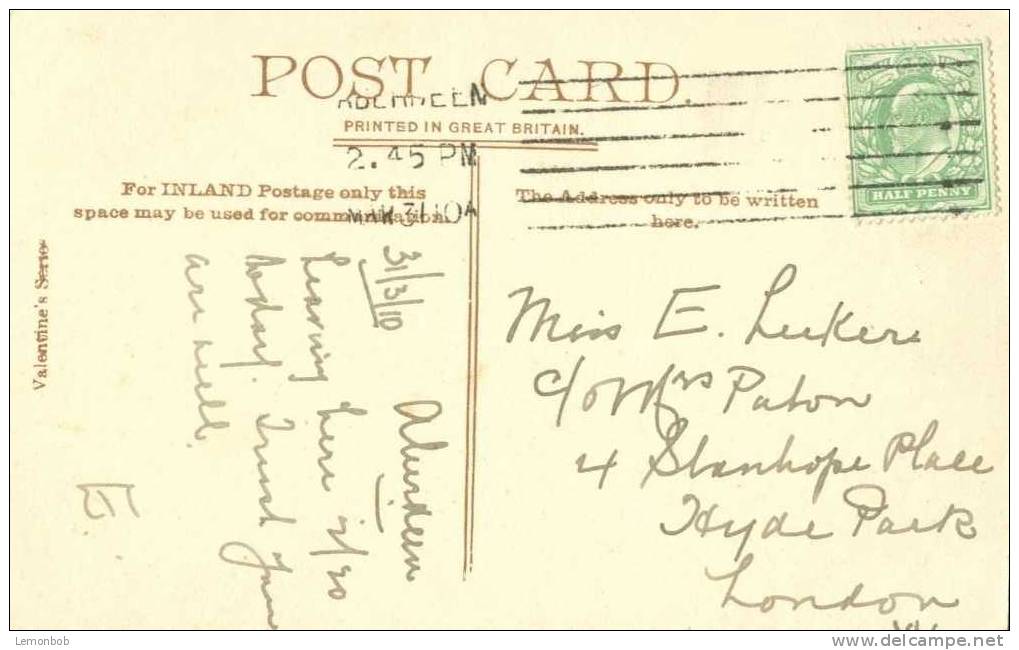 POST CARD.
ABERDEEN
PRINTED IN GREAT BRITAIN.
2.45 PM
MAR 31 10A
For INLAND Postage only this
space may be used for communication.
The Address only to be written
here.
HALF PENNY
Valentine's Series
Aberdeen
31/3/10
Leaving here
today. Trust you
are well.
E
Miss E. Luker
c/o Mrs Paton
4 Stanhope Place
Hyde Park
London
W
Lemonbob
delcampe.net